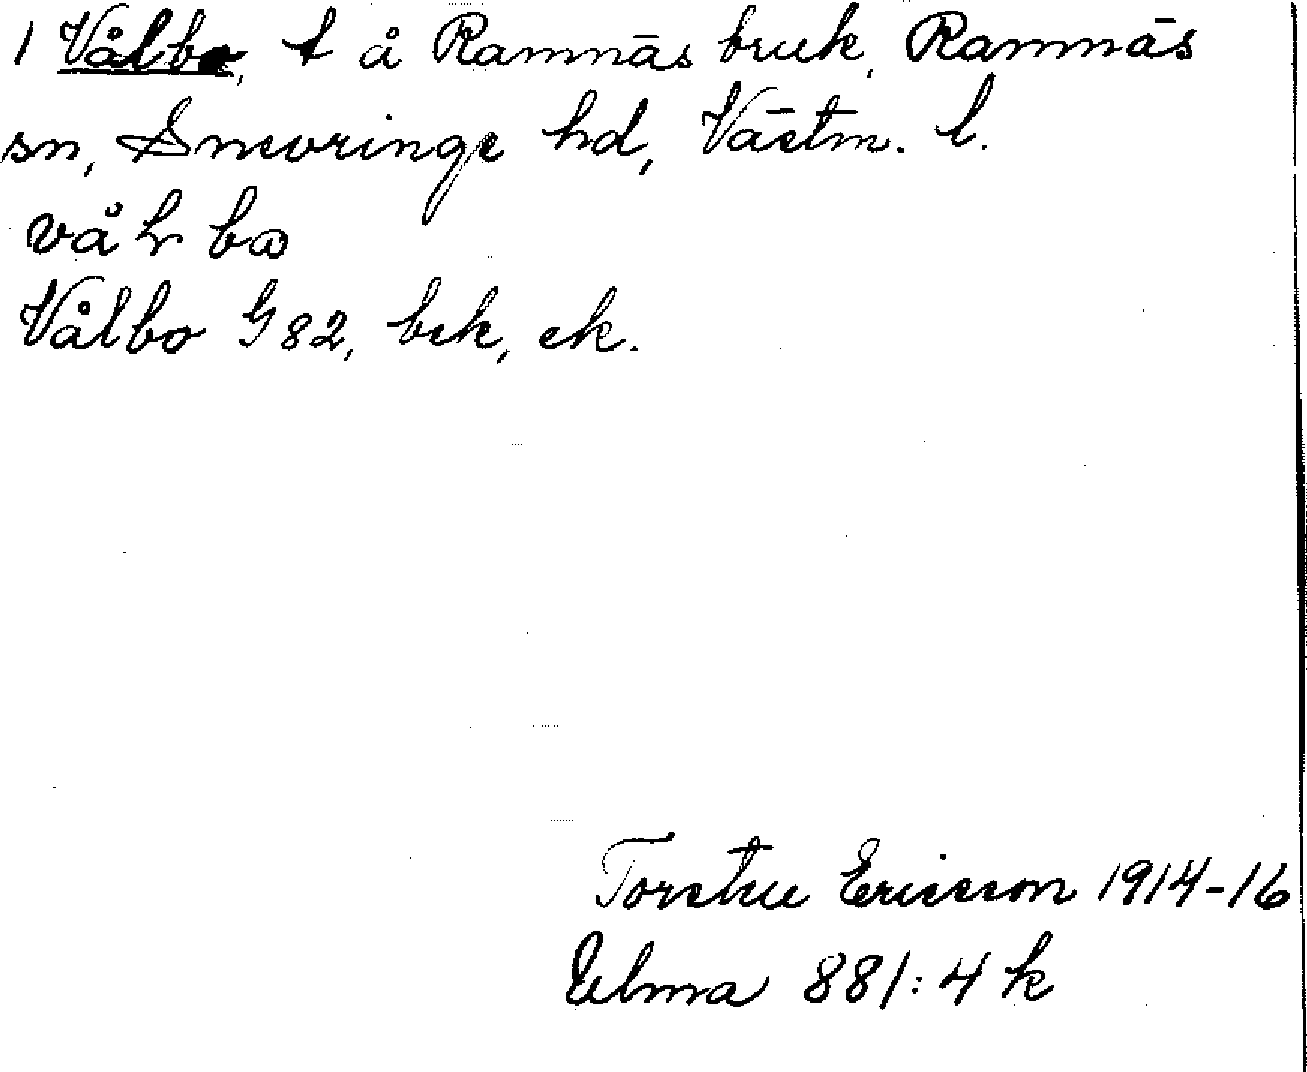 1 Vålbo, t å Ramnäs bruk, Ramnäs
sn, Snevringe hd, Västm. l.
Vålbo G 82, bek, ek.
Torsten Ericsson 1914-16
Ulma 881:4 k